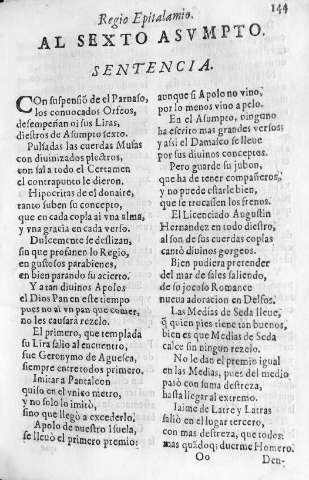 Regio Epitalamio. 144
AL SEXTO ASVMPTO.
SENTENCIA.
COn suspensiõ de el Parnaso,
los conuocados Orfeos,
desempeñan oi sus Liras,
diestros de Asumpto sexto.
Pulsadas las cuerdas Musas
con diuinizados plectros,
con sal a todo el Certamen
el contrapunto le dieron.
Hipocritas de el donaire,
tanto suben su concepto,
que en cada copla ai vna alma,
y vna gracia en cada verso.
Dulcemente se deslizan,
sin que profanen lo Regio,
en gustosos parabienes,
en bien parando su acierto.
Y a tan diuinos Apolos
el Dios Pan en este tiempo
pues no ai vn pan que comer,
no les causarà rezelo.
El primero, que templada
su Lira salio al encuentro,
fue Geronymo de Aguesca,
siempre entre todos primero.
Imitar a Pantaleon
quiso en el vnico metro,
y no solo lo imitò,
sino que llegò a excederlo.
Apolo de nuestro Isuela,
se lleuò el primero premio:
aunque si Apolo no vino,
por lo menos vino a pelo.
En el Asumpto, ninguno
ha escrito mas grandes versos
y assi el Damasco se lleue
por sus diuinos conceptos.
Pero guarde su jubon,
que ha de tener compañeros,
y no puede estarle bien,
que se trocassen los frenos.
El Licenciado Augustin
Hernandez en todo diestro,
al son de sus cuerdas coplas
cantò diuinos gorgeos.
Bien pudiera pretender
del mar de sales saliendo,
de so jocoso Romance
nueua adoracion en Delfos.
Las Medias de Seda lleue,
q̃ quien pies tiene tan buenos,
bien es que Medias de Seda
calce sin ningun rezelo.
No le dan el premio igual
en las Medias, pues del medio
pasò con suma destreza,
hasta llegar al extremo.
Jaime de Latre y Latras
saliò en el lugar tercero,
con mas destreza, que todos:
mas quãdoq; duerme Homero.
Oo Den-